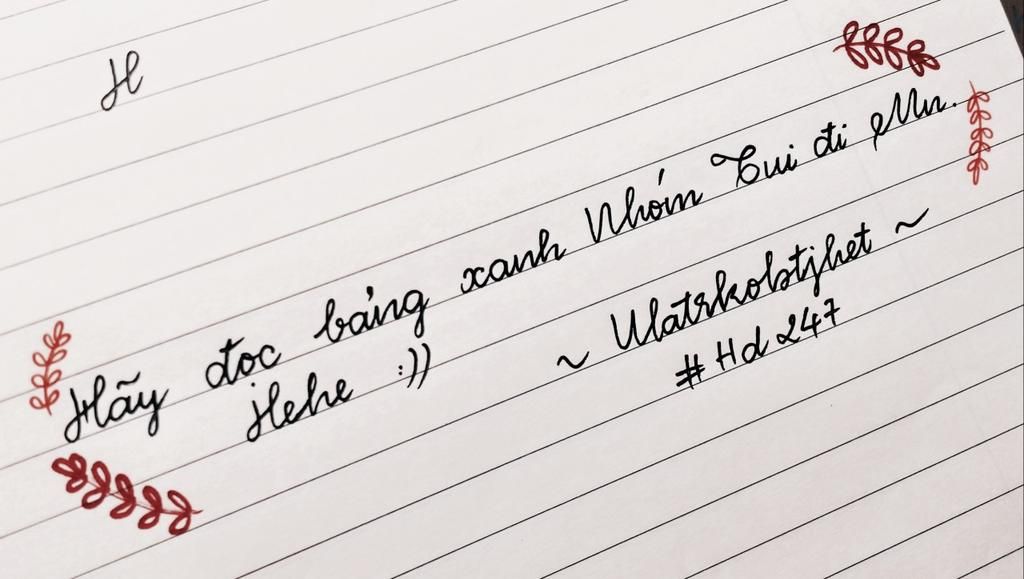 H
Hãy đoc bảng xanh Nhóm Tui đi Mn.
Hehe :))
~ Ulatrkobtjhet ~
# Hd 247